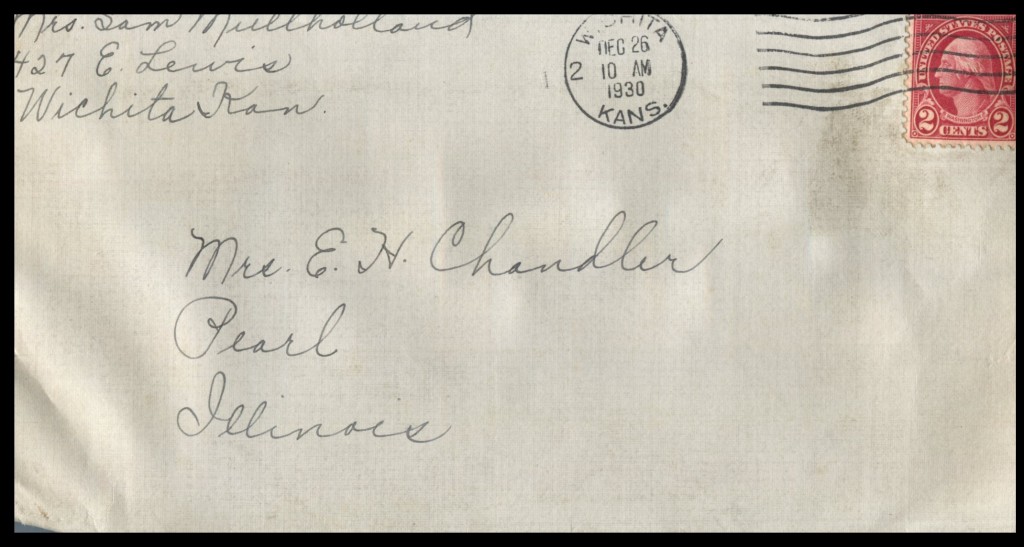 Mrs. Sam Mullholland
427 E. Lewis
Wichita Kan.
WICHITA
DEC 26
2 10 AM
1930
KANS.
UNITED STATES POSTAGE
WASHINGTON
2 CENTS 2
Mrs. E. H. Chandler
Pearl
Illinois